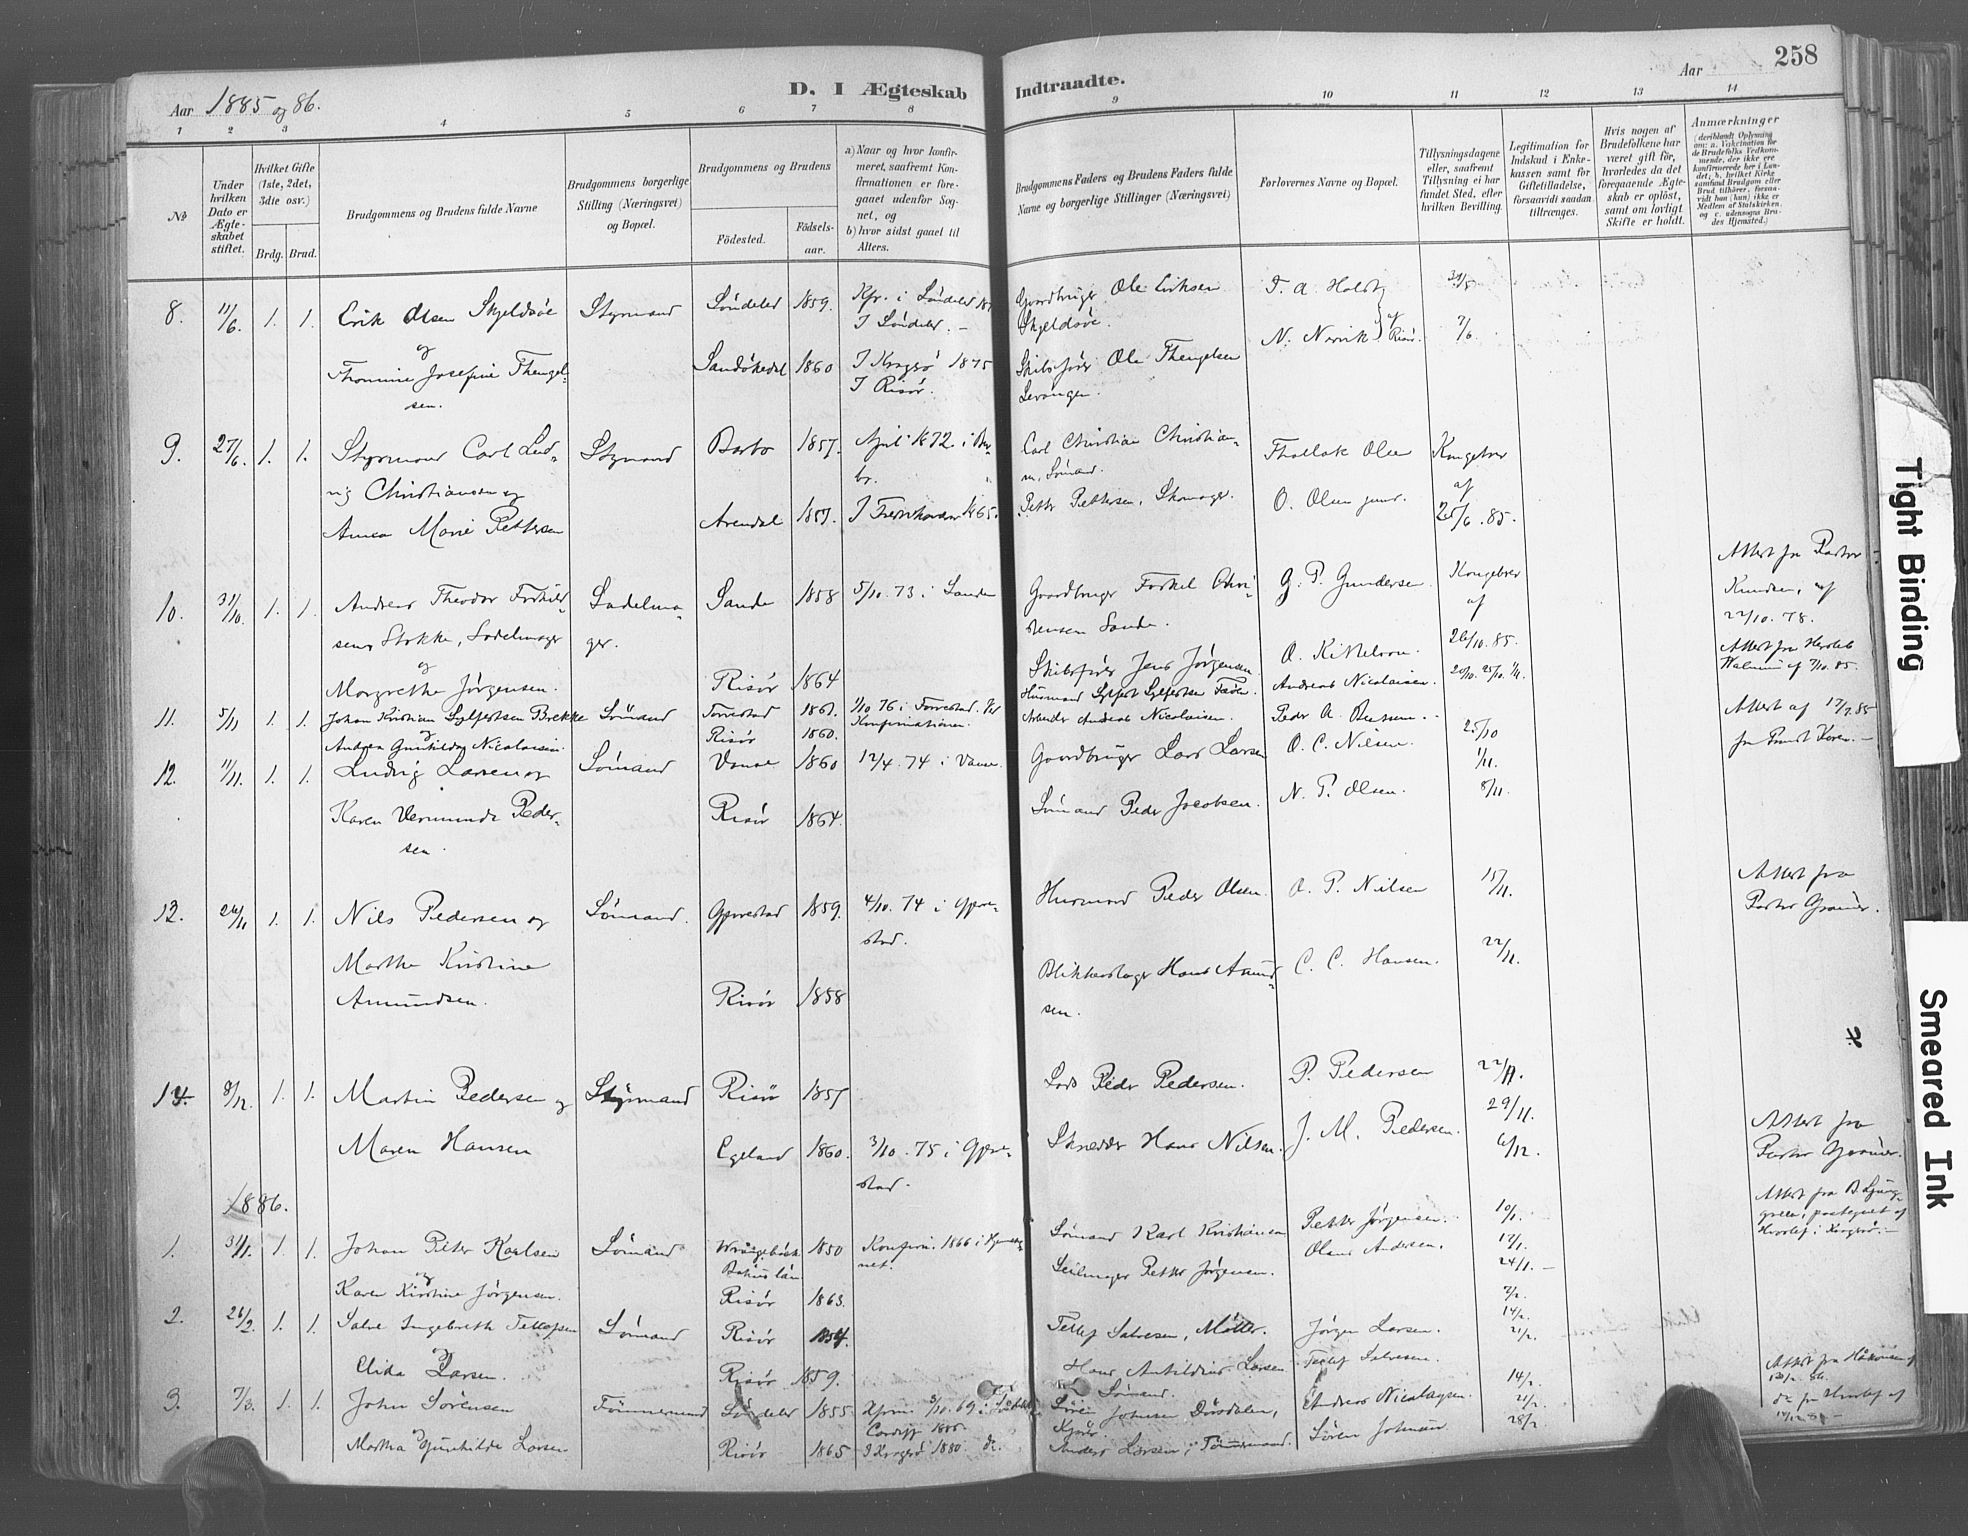 Aar 1885 og 86.
D. I Ægteskab Indtraadte.
Aar 258
1 2 3 4 5 6 7 8 9 10 11 12 13 14
No
Under hvilken Dato er Ægteskabet stiftet.
Hvilket Gifte (1ste, 2det, 3dte osv.)
Brdg. Brud.
Brudgommens og Brudens fulde Navne
Brudgommens borgerlige Stilling (Næringsvei) og Bopæl.
Brudgommens og Brudens
Fødested. Fødselsaar.
a) Naar og hvor konfirmeret, saafremt Konfirmationen er foregaaet udenfor Sognet, og
b) hvor sidst gaaet til Alters.
Brudgommens Faders og Brudens Faders fulde Navne og borgerlige Stillinger (Næringsvei)
Forlovernes Navne og Bopæl.
Tillysningsdagene eller, saafremt Tillysning ei har fundet Sted, efter hvilken Bevilling.
Legitimation for Indskud i Enkekassen samt for Giftetilladelse, forsaavidt saadan tiltrænges.
Hvis nogen af Brudefolkene har været gift før, hvorledes da det foregaaende Ægteskab er opløst, samt om lovligt Skifte er holdt.
Anmærkninger
(deriblandt Oplysning om: a. Vaccination for de Brudefolks Vedkommende, der ikke ere konfirmerede her i Landet; b. hvilket Kirkesamfund Brudgom eller Brud tilhører, forsaavidt han (hun) ikke er Medlem af Statskirken, og c. udensogns Brudes Hjemsted.)
8. 11/6. 1. 1. Erik Olsen Skjeldsöe Styrmand Söndeled 1859. Kfr. i Söndeled
I Söndeled. –
Gaardbruger Ole Eriksen Skjeldsöe. T. A. Holst 31/5
N. Nervik af Risör. 7/6.
og
Thomine Josefine Thengelsen. Sandökedal 1860 I Kragerö 1875
I Risör.
Skibsförer Ole Thengelsen Levangen.
9. 27/6. 1. 1. Styrmand Carl Ludvig Christiansen og Styrmand Barbo 1857. April 1872 i
Carl Christian Christiansen, Sömand. Thollak Olsen Kongebrev af 25/6 .85.
Anna Marie Pettersen Arendal 1857. 1865.
Petter Pettersen, Skomager. O. Olsen junr.
10. 31/10. 1. 1. Andreas Theodor Torkildsen Stokke, Sadelmager Sadelmager. Sande 1858 5/10. 73 i Sande
Gaardbruger Torkel Christensen Sande. G. P. Gundersen. Kongebrev af 26/10. 85.
Attest fra Pastor Knudsen, af 22/10. 78.
og
Margrethe Jørgensen. Risör 1864
Skibsförer Jens Jørgensen O. Kittelsen.
Attest fra
11. 5/11 1. 1. Johan Kristian Sylfestsen Brekke Sömand Torrestad 1861. 1/10 76 i Torrestad. Ved Konfirmationen.
Husmand Sylfest Sylfestsen Andreas Nicolaisen. 25/10. 1/11.
Andrea Gunhilda Nicolaisen. Risör 1860.
Arbeider Andreas Nicolaisen. Peder A.
Attest af 17/7.85
12. 11/11. 1. 1. Ludvig Larsen og Sömand Vanse 1860 12/4. 74 i Vanse.
Gaardbruger Lars Larsen O. C. Nilsen. 25/10
1/11.
8/11.
Karen Vermunde Pedersen. Risör 1864.
Sömand Peder Jacobsen. N. P. Olsen.
13. 26/11 1. 1. Nils Pedersen og Sömand. Gjerrestad 1859. 4/10. 74 i Gjerrestad.
Husmand Peder Olsen. O. P. Nilsen 15/11.
Attest fra Pastor
Marthe Kristine Amundsen. Risör 1858
Blikkenslager Hans Amundsen. C. C. Hansen. 22/11.
14. 8/12. 1. 1. Martin Pedersen og Styrmand Risör 1857
Lods Peder Pedersen. P. Pedersen 22/11.
29/11.
6/12.
Maren Hansen Egeland 1860. 3/10. 75 i Gjerrestad.
Skrædder Hans Nilsen. J. M. Pedersen.
Attest fra Pastor
1886.
1. 31/1. 1. 1. Johan Peter Karlsen Sömand 1850 Konfirm. 1866 i
Bahuslän
Sömand Karl Kristiansen Petter Jørgensen. 10/1.
17/1.
24/1. –
og
Karen Kirstine Jørgensen. Risör 1863.
Seilmager Petter Jørgensen. Olaus Andersen.
2. 26/2 1. 1. Salve Ingebreth Tellefsen Sömand Risör 1854.
Tellef Salvesen, Møller. Jørgen Larsen. 7/2.
14/2.
21/2.
og
Elida Larsen. Risör 1859.
Hans Larsen Sömand. Tellef Salvesen.
3. 7/3. 1. 1. John Sørensen Tömmermand Söndeled 1855 Kfrm. 5/10. 69 i
Cardiff
Sören Johnsen Dørsdalen, Andreas Nicolaysen. 14/2.
21/2.
28/2.
og
Martha Gunhilde Larsen Risör 1865 I Kragerö 1880 do.
Anders Larsen, Tömmermand. Sören Johnsen
Tight Binding
Smeared Ink